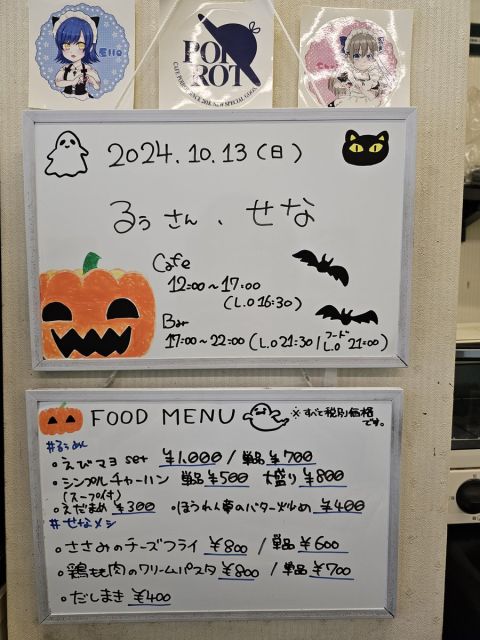 POI
ROT
2024.10.13(日)
るぅさん、せな
Cafe
12:00〜17:00
(L.O 16:30)
Bar
17:00〜22:00 (L.O 21:30 / フード L.O 21:00)
FOOD MENU
※すべて税別価格
です。
#るぅめし
・えびマヨ set ¥1,000 / 単品 ¥700
・シンプルチャーハン 単品 ¥500 大盛り ¥800
(スープ付)
・えだまめ ¥300 ・ほうれん草のバター炒め ¥400
#せなメシ
・ささみのチーズフライ ¥800 / 単品 ¥600
・鶏もも肉のクリームパスタ ¥800 / 単品 ¥700
・だしまき ¥400